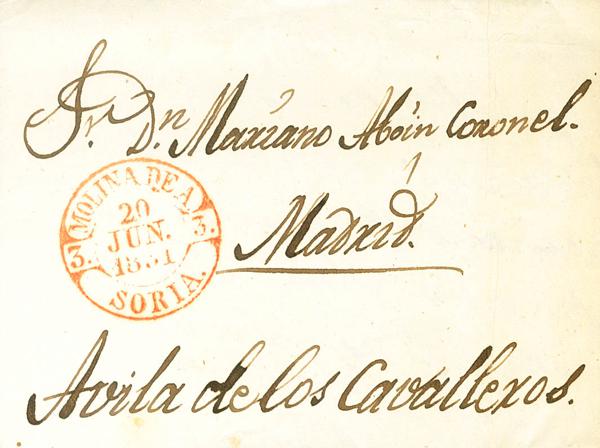 Sr. Dn. Mariano Aboin Coronel.
Madrid.
MOLINA DE A.
3. 3.
20
JUN.
1851
SORIA.
Avila de los Cavalleros.